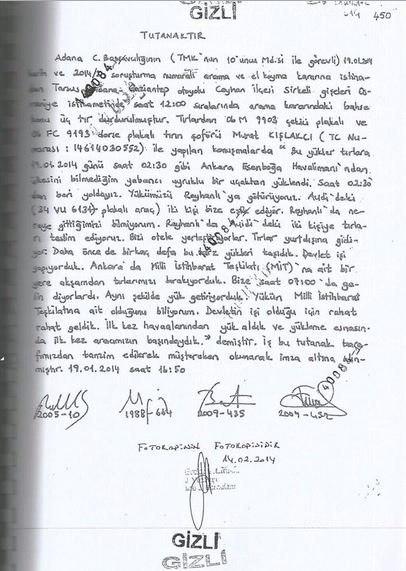 GİZLİ
014 450
TUTANAKTIR
Adana C. Başsavcılığının (TMK'nun 10'uncu Md.si ile görevli) 19.01.2014
tarih ve 2014/ soruşturma numaralı arama ve el koyma kararına istina-
den Tarsus Adana Gaziantep otoyolu Ceyhan ilçesi Sirkeli gişeleri Os-
maniye istikametinde saat 12:00 sıralarında arama kararındaki bahse
konu üç tır durdurulmuştur. Tırlardan 06 M 9903 çekici plakalı ve
06 FC 9193 dorse plakalı tırın şoförü Murat KIŞLAKÇI (TC Nu-
marası: 14614030552) ile yapılan konuşmalarda "Bu yükler tırlara
19.01.2014 günü saat 02:30 gibi Ankara Esenboğa Havalimanı'ndan
ülkesini bilmediğim yabancı uyruklu bir uçaktan yüklendi. Saat 02:30
dan beri yoldayız. Yükümüzü Reyhanlı'ya götürüyoruz. Audi'deki
(34 VU 6134 plakalı araç) iki kişi bize eşlik ediyor. Reyhanlı'da ne-
reye gittiğimizi bilmiyorum. Reyhanlı'da Audi'deki iki kişiye tırla-
rı teslim ediyoruz. Bizi otele yerleştiriyorlar. Tırlar yurtdışına gidi-
yor. Daha önce de birkaç defa bu yükleri taşıdık. Devlet işi
yapıyorduk. Ankara'da Milli İstihbarat Teşkilatı (MİT)'na ait bir
yere akşamdan tırlarımızı bırakıyorduk. Bize saat 07:00'da ge-
lin diyorlardı. Aynı şekilde yük getiriyorduk. Yükün Milli İstihbarat
Teşkilatına ait olduğunu biliyorum. Devletin işi olduğu için rahat
rahat geldik. İlk kez havaalanından yük aldık ve yükleme esnasın-
da ilk kez aracımızın başındaydık." demiştir. İş bu tutanak tara-
fımızdan tanzim edilerek müştereken okunarak imza altına alın-
mıştır. 19.01.2014 saat 16:50
2005-10 1988-664 2009-435 2009-452
FOTOKOPİNİN FOTOKOPİSİDİR
14.02.2014
GİZLİ
GİZLİ